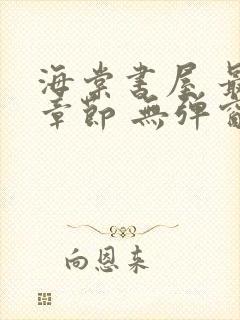 海棠書屋 最
章節 無彈窗
向恩来